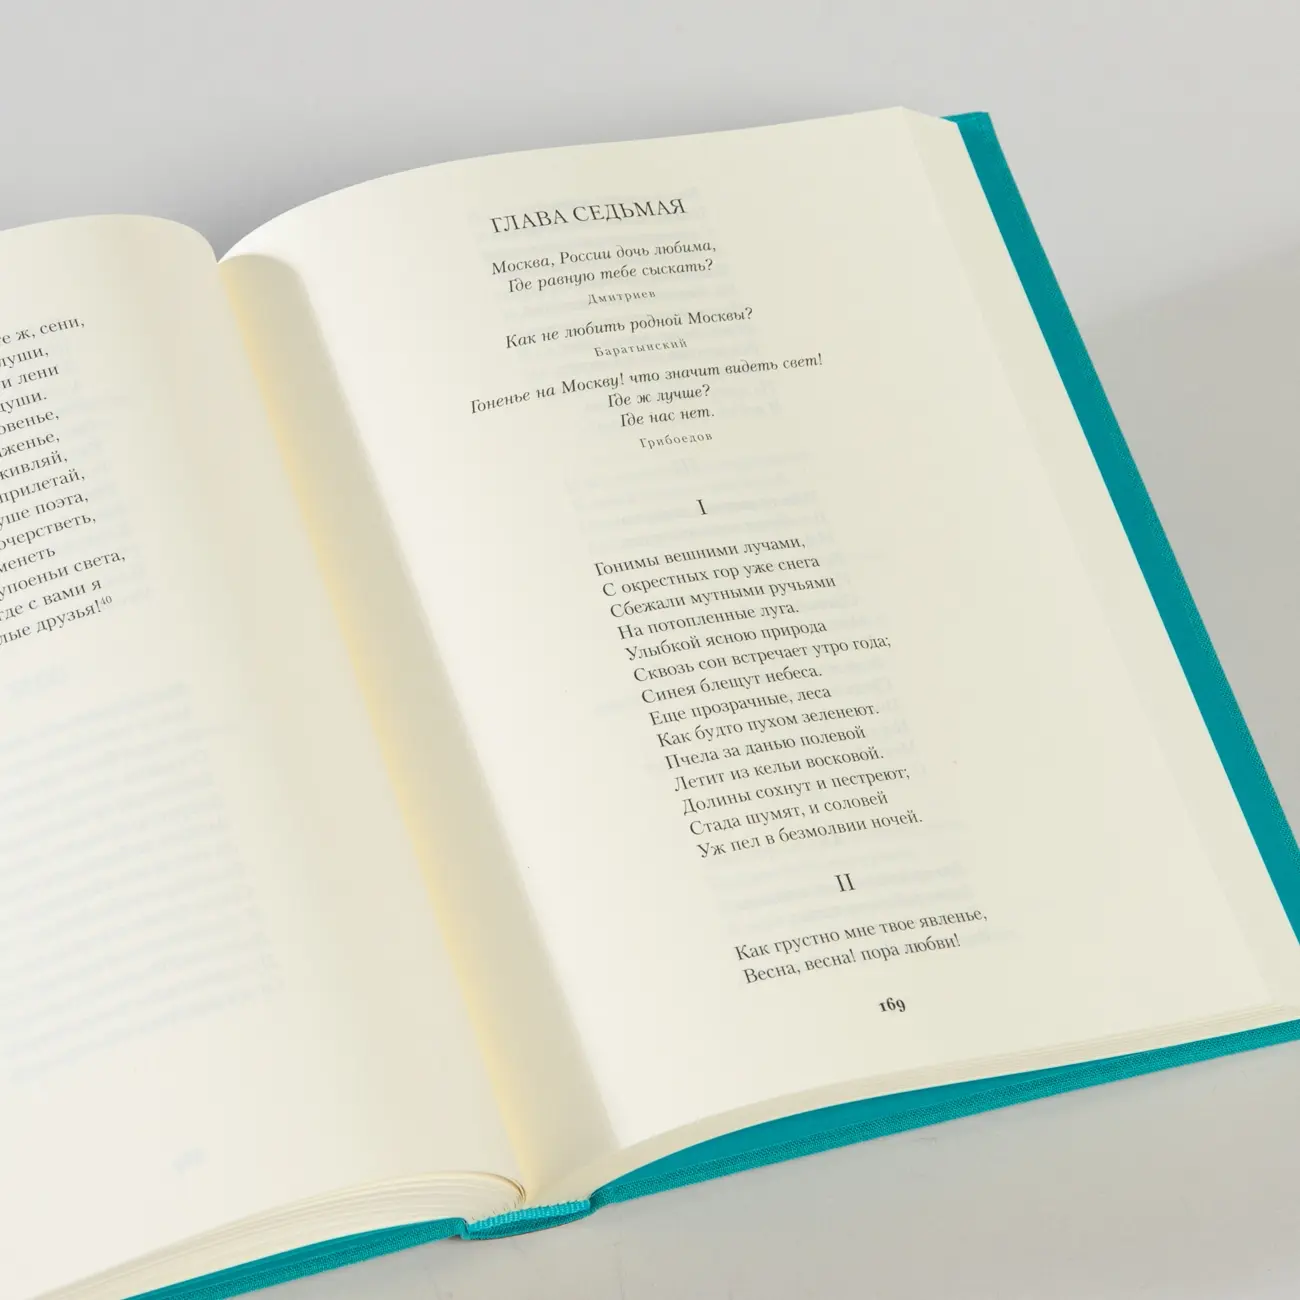 е ж, сени,
и лени
души.
прилетай,
уше поэта,
очерстветь,
упоеньи света,
где с вами я
лые друзья!⁴⁰
ГЛАВА СЕДЬМАЯ
Москва, России дочь любима,
Где равную тебе сыскать?
Дмитриев
Как не любить родной Москвы?
Баратынский
Гоненье на Москву! что значит видеть свет!
Где ж лучше?
Где нас нет.
Грибоедов
I
Гонимы вешними лучами,
С окрестных гор уже снега
Сбежали мутными ручьями
На потопленные луга.
Улыбкой ясною природа
Сквозь сон встречает утро года;
Синея блещут небеса.
Еще прозрачные, леса
Как будто пухом зеленеют.
Пчела за данью полевой
Летит из кельи восковой.
Долины сохнут и пестреют;
Стада шумят, и соловей
Уж пел в безмолвии ночей.
II
Как грустно мне твое явленье,
Весна, весна! пора любви!
169